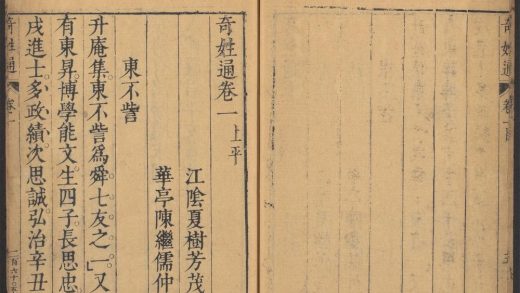 奇姓通卷一上平
江陰夏樹芳茂
華亭陳繼儒仲
東不訾
升庵集東不訾爲舜七友之一又
有東昇博學能文生四子長思忠
戌進士多政績次思誠弘治辛丑
奇姓通
卷一
奇姓通